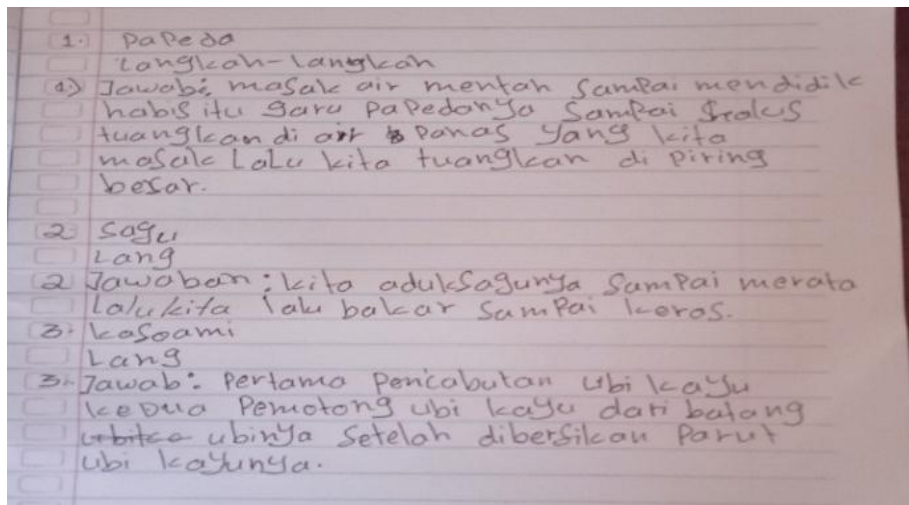 1. Papeda
Langkah-langkah
1) Jawab: masak air mentah sampai mendidik
habis itu garu papedanya sampai
tuangkan di air panas yang kita
masak Lalu kita tuangkan di piring
besar.
2 Sagu
Lang
2 Jawaban: kita aduksagunya sampai merata
Lalukita lalu bakar sampai keras.
3. kasoami
Lang
3. Jawab: Pertama Pencabutan ubi kayu
keDua Pemotong ubi kayu dari batang
ubinya setelah dibersikan Parut
ubi kayunya.